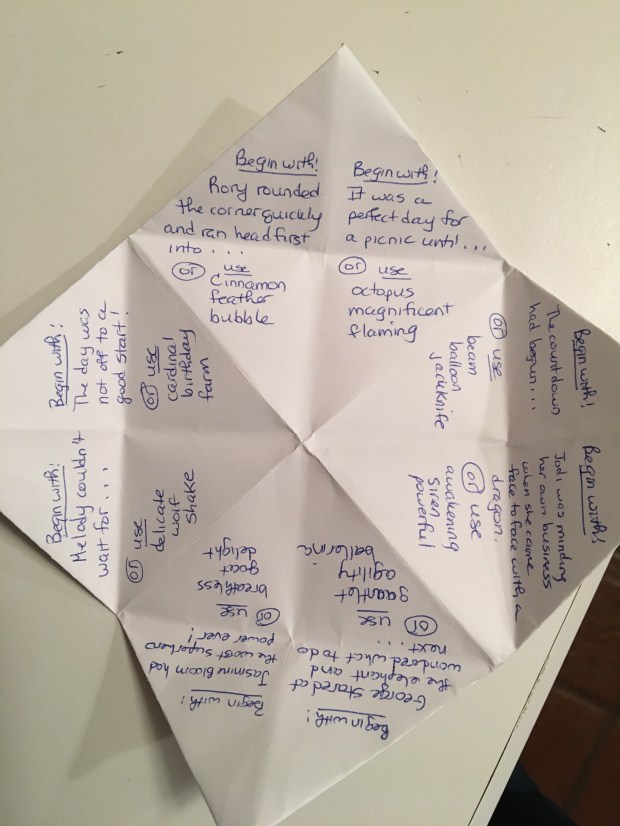 Begin with!
Rory rounded
the corner quickly
and ran head first
into . . . .
or use
Cinnamon
feather
bubble
Begin with!
It was a
perfect day for
a picnic until . . .
or use
octopus
magnificent
flaming
Begin with!
The countdown
had begun . . .
or use
beam
balloon
jackknife
Begin with!
Jodi was minding
her own business
when she came
face to face with a
dragon.
or use
awakening
siren
powerful
Begin with!
George stared at
the elephant and
wondered what to do
next . . . .
or use
gauntlet
agility
ballerina
Begin with!
Jasmine Bloom had
the worst superhero
power ever!
or use
breathless
goat
delight
Begin with!
Melady couldn't
wait for . . . .
or use
delicate
wolf
shake
Begin with!
The day was
not off to a
good start!
or use
cardinal
birthday
farm